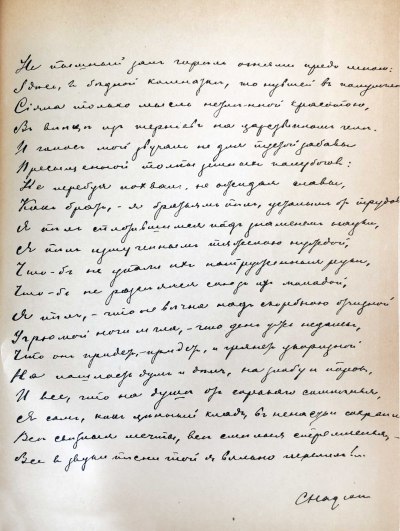 Не пышный залъ горѣлъ огнями предо мною:
Здѣсь, въ бѣдной комнаткѣ, тонувшей въ полу
Сіяла только мысль нетлѣнной красотою,
Въ вѣнцѣ изъ терніевъ на царственномъ челѣ.
И голосъ мой звучалъ не для пустой забавы
Пресыщенной толпы земныхъ полубоговъ:
Не требуя похвалъ, не ожидая славы,
Какъ братъ, - я братьямъ пѣлъ, усталымъ отъ трудовъ
Я пѣлъ сплотившимся подъ знаменемъ науки,
Я пѣлъ измученнымъ тяжелою нуждой,
Что-бъ не упали ихъ натруженныя руки,
Что-бъ не распался союзъ ихъ молодой,
Я пѣлъ, - что не вѣчна надъ скорбною отчизной
Угрюмой ночи мгла, - что день уже недалекъ,
Что онъ придетъ, - придетъ, и грянетъ укоризной
На пошлость думъ и дѣлъ, на злобу и порокъ,
И все, что на душѣ отъ
Я самъ, какъ цѣнный кладъ, въ ненастье сохранилъ
Всѣ свѣтлыя мечты, всѣ смѣлыя стремленья, -
Все въ звуки пѣсни той я перелилъ!...
СНадсон